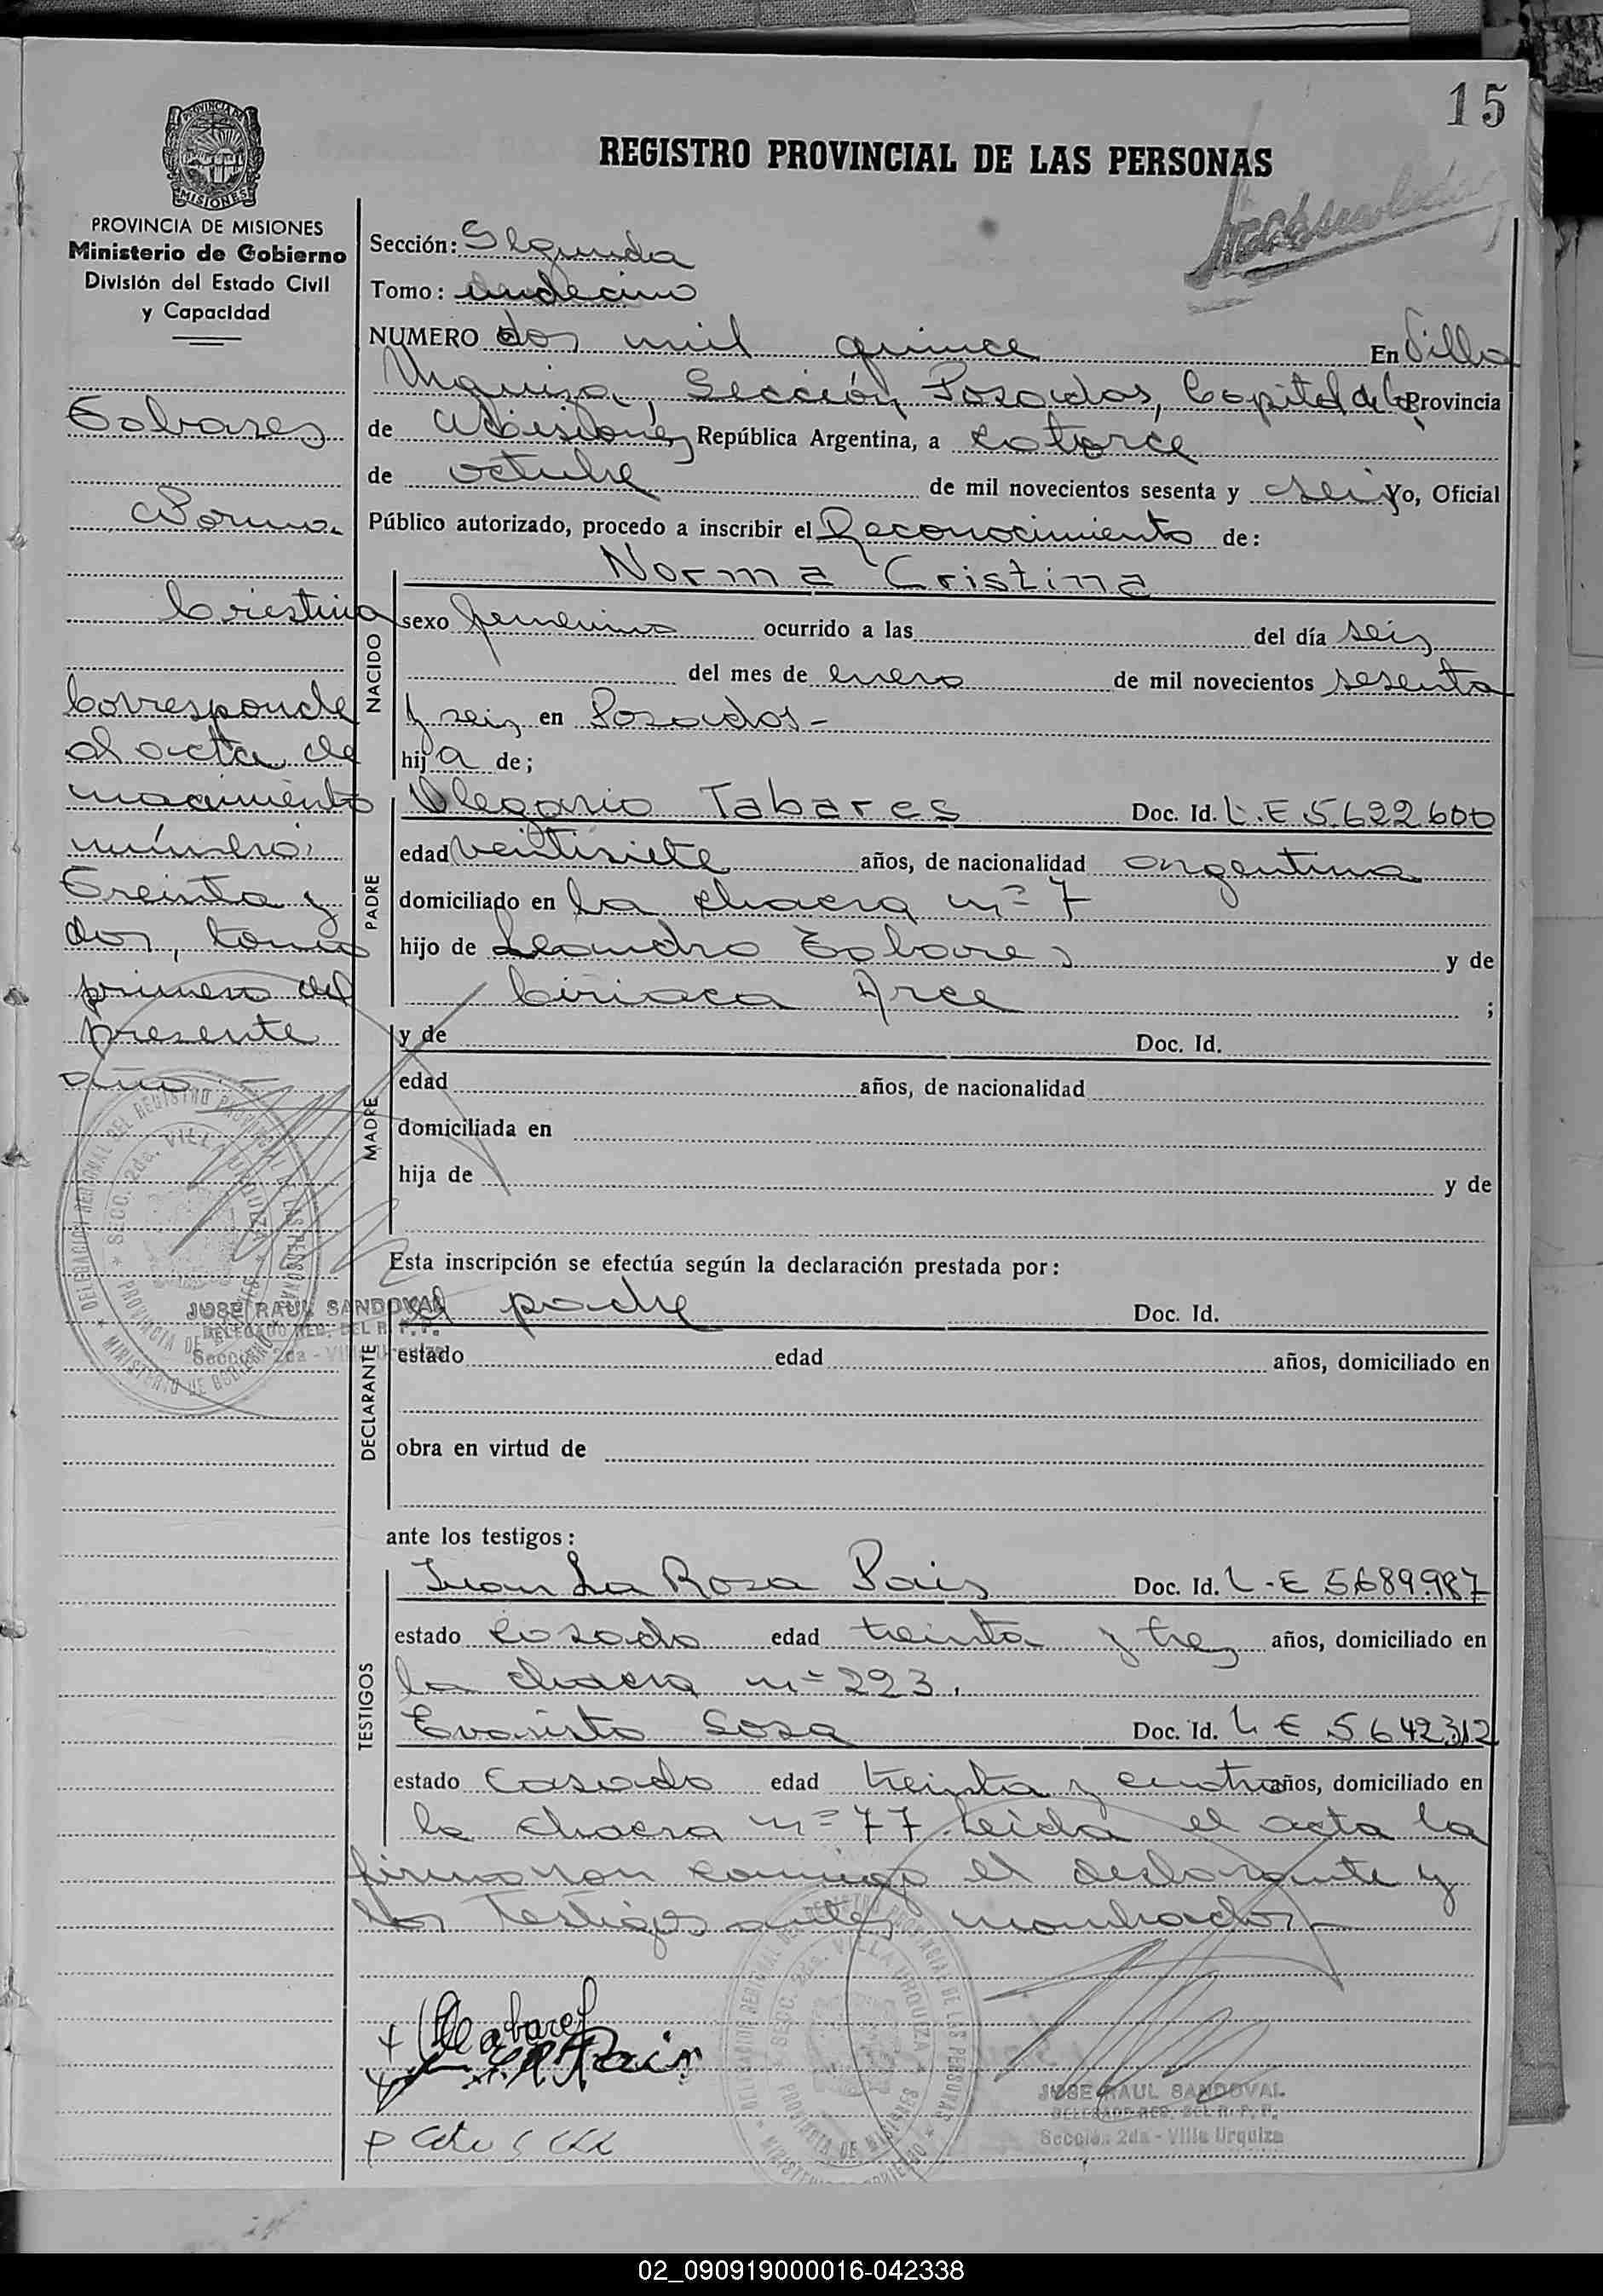 15
REGISTRO PROVINCIAL DE LAS PERSONAS
PROVINCIA DE
MISIONES
PROVINCIA DE MISIONES
Ministerio de Gobierno
División del Estado Civil
y Capacidad
Tabares
Norma
Cristina
Corresponde
al acta de
nacimiento
número:
Treinta y
dos, tomo
primero del
presente
año.-
DELEGACION REGIONAL DEL REGISTRO PROVINCIAL DE LAS PERSONAS
SECC. 2da. VILLA URQUIZA
PROVINCIA DE MISIONES
MINISTERIO DE GOBIERNO
JOSE RAUL SANDOVAL
DELEGADO REG. DEL R. P. P.
Sección 2da - Villa Urquiza
Sección: Segunda
Tomo: undecimo
NUMERO dos mil quince En Villa
Urquiza, Sección Posadas, Capital de la Provincia
de Misiones República Argentina, a catorce
de octubre de mil novecientos sesenta y seis Yo, Oficial
Público autorizado, procedo a inscribir el Reconocimiento de:
Norma Cristina
NACIDO
sexo femenino ocurrido a las del día seis
del mes de enero de mil novecientos sesenta
y seis en Posadas-
hija de;
PADRE
Olegario Tabares Doc. Id. L.E 5.622.600
edad veintisiete años, de nacionalidad argentina
domiciliado en la chacra nº 7
hijo de Leandro Tabares y de
Ciriaca Arce ;
MADRE
y de Doc. Id.
edad años, de nacionalidad
domiciliada en
hija de y de
Esta inscripción se efectúa según la declaración prestada por:
DECLARANTE
el padre Doc. Id.
estado edad años, domiciliado en
obra en virtud de
ante los testigos:
TESTIGOS
Juan La Rosa Pais Doc. Id. L-E 5.689.987
estado casado edad treinta y tres años, domiciliado en
la chacra nº 223.
Evaristo Sosa Doc. Id. L E 5 642312
estado casado edad treinta y cuatro años, domiciliado en
la chacra nº 77. Leida el acta la
firmaron conmigo el declarante y
los testigos antes nombrados.-
DELEGACION REGIONAL DEL REGISTRO PROVINCIAL DE LAS PERSONAS
SECC. 2da. VILLA URQUIZA
PROVINCIA DE MISIONES
MINISTERIO DE GOBIERNO
JOSE RAUL SANDOVAL
DELEGADO REG. DEL R. P. P.
Sección 2da - Villa Urquiza
02_090919000016-042338